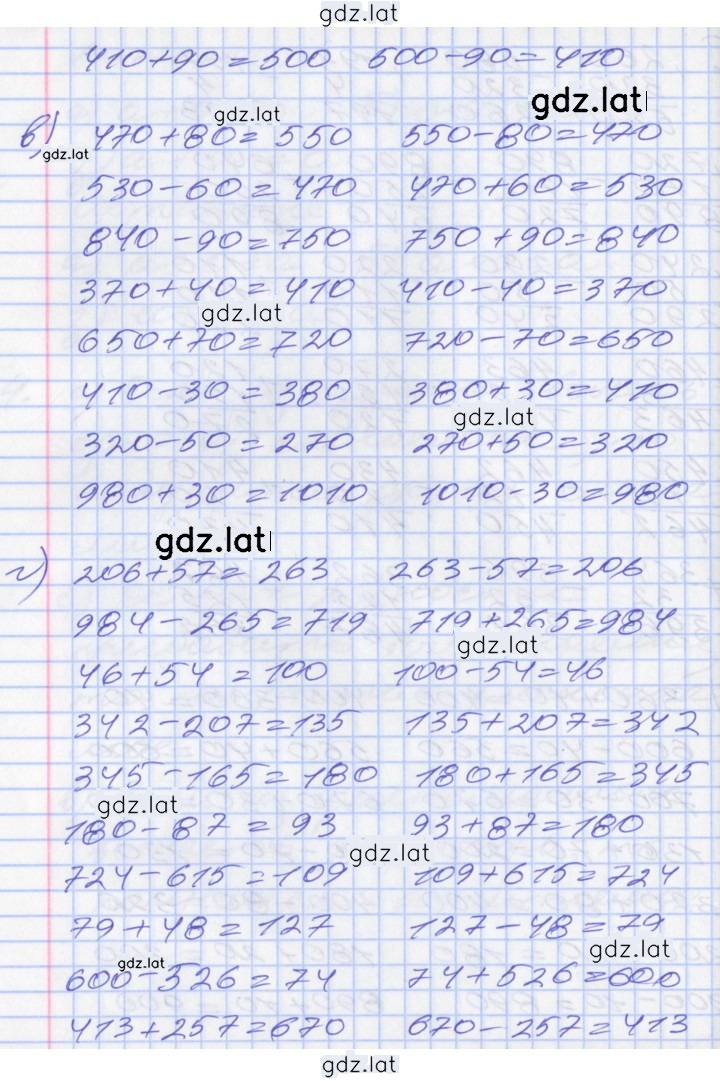 gdz.lat
410+90=500 500-90=410
gdz.lat gdz.lat
в) 470+80=550 550-80=470
gdz.lat
530-60=470 470+60=530
840-90=750 750+90=840
370+40=410 410-40=370
gdz.lat
650+70=720 720-70=650
410-30=380 380+30=410
gdz.lat
320-50=270 270+50=320
980+30=1010 1010-30=980
gdz.lat
г) 206+57=263 263-57=206
984-265=719 719+265=984
gdz.lat
46+54=100 100-54=46
342-207=135 135+207=342
345-165=180 180+165=345
gdz.lat
180-87=93 93+87=180
gdz.lat
724-615=109 109+615=724
79+48=127 127-48=79
gdz.lat gdz.lat
600-526=74 74+526=600
413+257=670 670-257=413
gdz.lat